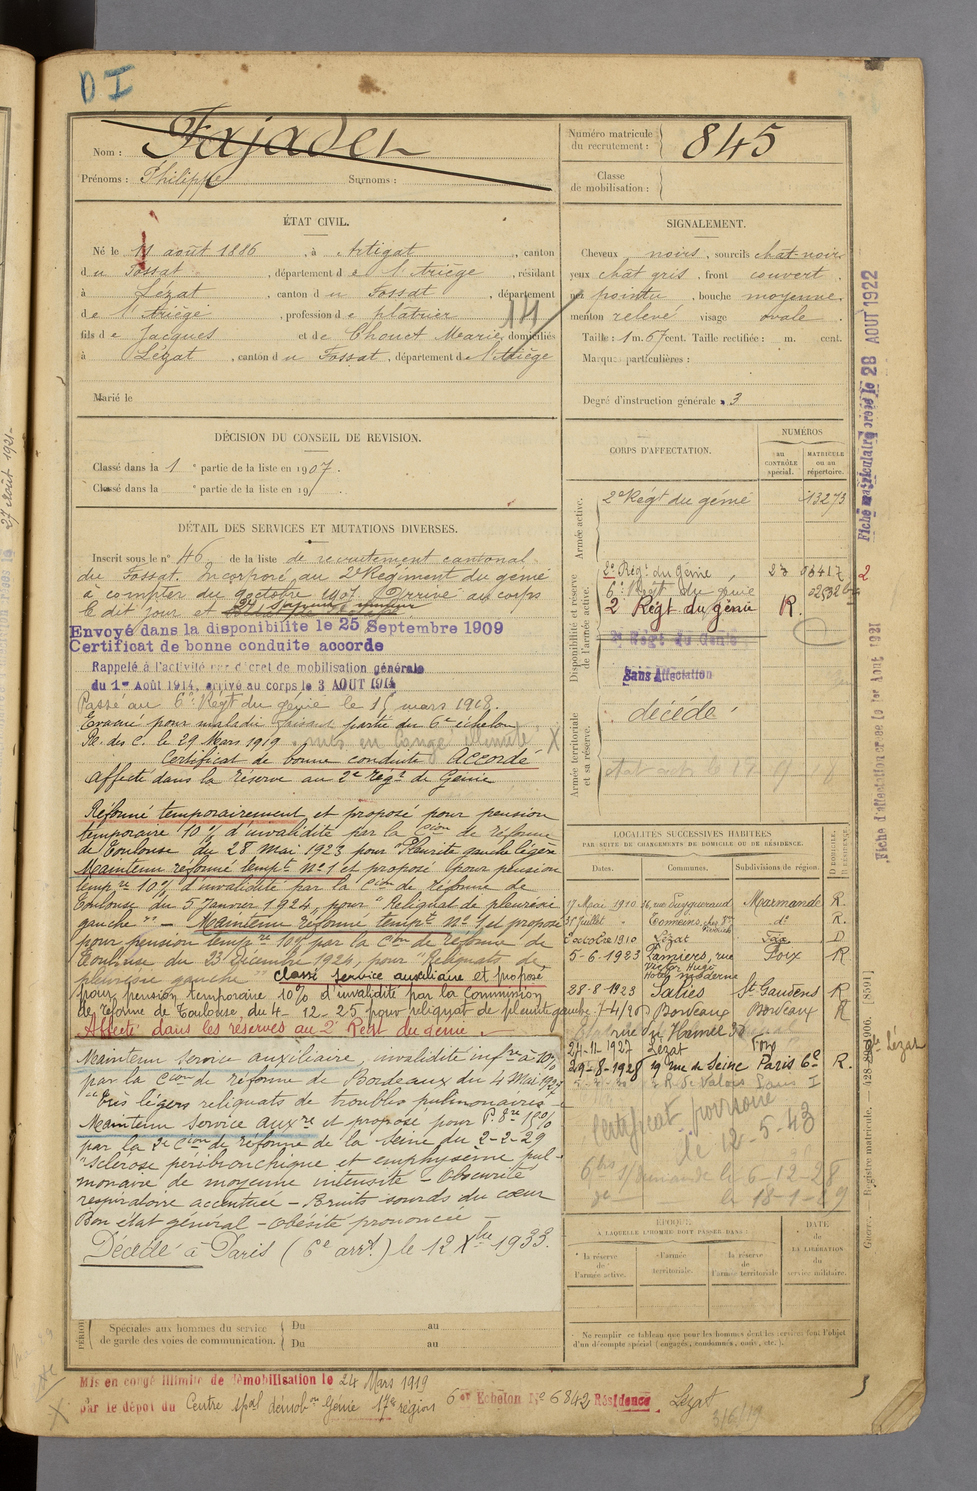 D I
Nom : Fajadet
Prénoms : Philippe Surnoms :
Numéro matricule du recrutement : 845
Classe de mobilisation :
ÉTAT CIVIL.
Né le 11 août 1886, à Artigat, canton
du Fossat, département de l'Ariège, résidant
à Lézat, canton du Fossat, département
de l'Ariège, profession de plâtrier
14
fils de Jacques et de Chouet Marie, domiciliés
à Lézat, canton du Fossat, département de l'Ariège
Marié le
SIGNALEMENT.
Cheveux noirs, sourcils chat-noir
yeux chat gris, front couvert,
nez pointu, bouche moyenne
menton relevé visage ovale.
Taille : 1 m. 67 cent. Taille rectifiée : m. cent.
Marques particulières :
Degré d'instruction générale : 3
DÉCISION DU CONSEIL DE REVISION.
Classé dans la 1e partie de la liste en 1907.
Classé dans la e partie de la liste en 19
DÉTAIL DES SERVICES ET MUTATIONS DIVERSES.
Inscrit sous le n° 46 de la liste de recrutement cantonal
du Fossat. Incorporé au 2e Régiment du génie
à compter du 9 octobre 1907. Arrivé au corps
le dit jour et
Envoyé dans la disponibilité le 25 Septembre 1909
Certificat de bonne conduite accordé
Rappelé à l'activité par décret de mobilisation générale
du 1er Août 1914, arrivé au corps le 3 AOUT 1914
Passé au 6e Régt du génie le 15 mars 1918.
Evacué pour maladie faisant partie du 6e échelon
Pl. des C. le 29 Mars 1919. mis en congé illimité X
Certificat de bonne conduite Accordé
Affecté dans la réserve au 2e Régt de Génie
Réformé temporairement et proposé pour pension
temporaire 10% d'invalidité par la Cion de réforme
de Toulouse du 28 Mai 1923 pour "Pleurite gauche légère
Maintenu réformé tempt n°1 et proposé pour pension
tempre 10% d'invalidité par la Cion de réforme de
Toulouse du 5 Janvier 1924, pour "Reliquat de pleurésie
gauche". - Maintenu réformé tempt n°1 et proposé
pour pension tempre 10% par la Cion de réforme de
Toulouse du 23 Décembre 1924, pour "Reliquats de
pleurésie gauche" classé service auxiliaire et proposé
pour pension temporaire 10% d'invalidité par la Commission
de réforme de Toulouse, du 4-12-25 pour reliquat de pleurite gauche
Affecté dans les réserves au 2e Régt du génie.
Maintenu service auxiliaire, invalidité infre à 10%
par la Cion de réforme de Bordeaux du 4 Mai 1927
Très légers reliquats de troubles pulmonaires
Maintenu service auxre et proposé pour P. 15%
par la 2e Cion de réforme de la Seine du 2-2-29
"sclérose péribronchique et emphysème pul-
monaire de moyenne intensité - Obscurité
respiratoire accentuée - Bruits sourds du cœur
Bon état général - Obésité prononcée -
Décédé à Paris (6e arrt.) le 12 Xbre 1933.
CORPS D'AFFECTATION.
NUMÉROS
au CONTRÔLE spécial.
MATRICULE ou au répertoire.
Armée active.
2e Régt du génie 13273
Disponibilité et réserve de l'armée active.
2e Régt du Génie 23 06417 2
6e Régt du génie
2 Régt du génie R.
2e Régt du Génie
Sans Affectation
Armée territoriale et sa réserve.
décédé
LOCALITÉS SUCCESSIVES HABITÉES
PAR SUITE DE CHANGEMENTS DE DOMICILE OU DE RÉSIDENCE.
Dates. Communes. Subdivisions de région. D. DOMICILE. R. RÉSIDENCE.
17 Mai 1910 Marmande R.
31 Juillet - Tonneins, do R.
2 octobre 1910 Lézat Foix D
5-6-1923 Pamiers, rue Foix R
Victor Hugo
Hotel moderne
28-8-1923 Salies St Gaudens R
7-4/26 Bordeaux Bordeaux R
rue du Hamel 32
24-11-1927 Lézat Foix de Lézat
29-8-1928 19 rue de Seine Paris 6e R.
R. de Valois
Certificat
le 12-5-43
demande le 6-12-28
le 18-1-29
ÉPOQUE
À LAQUELLE L'HOMME DOIT PASSER DANS :
la réserve de l'armée active.
l'armée territoriale.
la réserve de l'armée territoriale
DATE de LA LIBÉRATION du service militaire.
Ne remplir ce tableau que pour les hommes dont les services font l'objet
d'un décompte spécial (engagés, condamnés, omis, etc.).
Spéciales aux hommes du service Du au
de garde des voies de communication. Du au
Mis en congé illimité de démobilisation le 24 Mars 1919
par le dépôt du Centre spal démobon Génie 17e région 6e Echelon N° 6842 Résidence Lézat
Fiche matriculaire créée le 28 AOUT 1922
Fiche d'affectation créée le 1er Aout 1921
Guerre. — Registre matricule. — 428-398-1906. [8591]
27 Août 1921